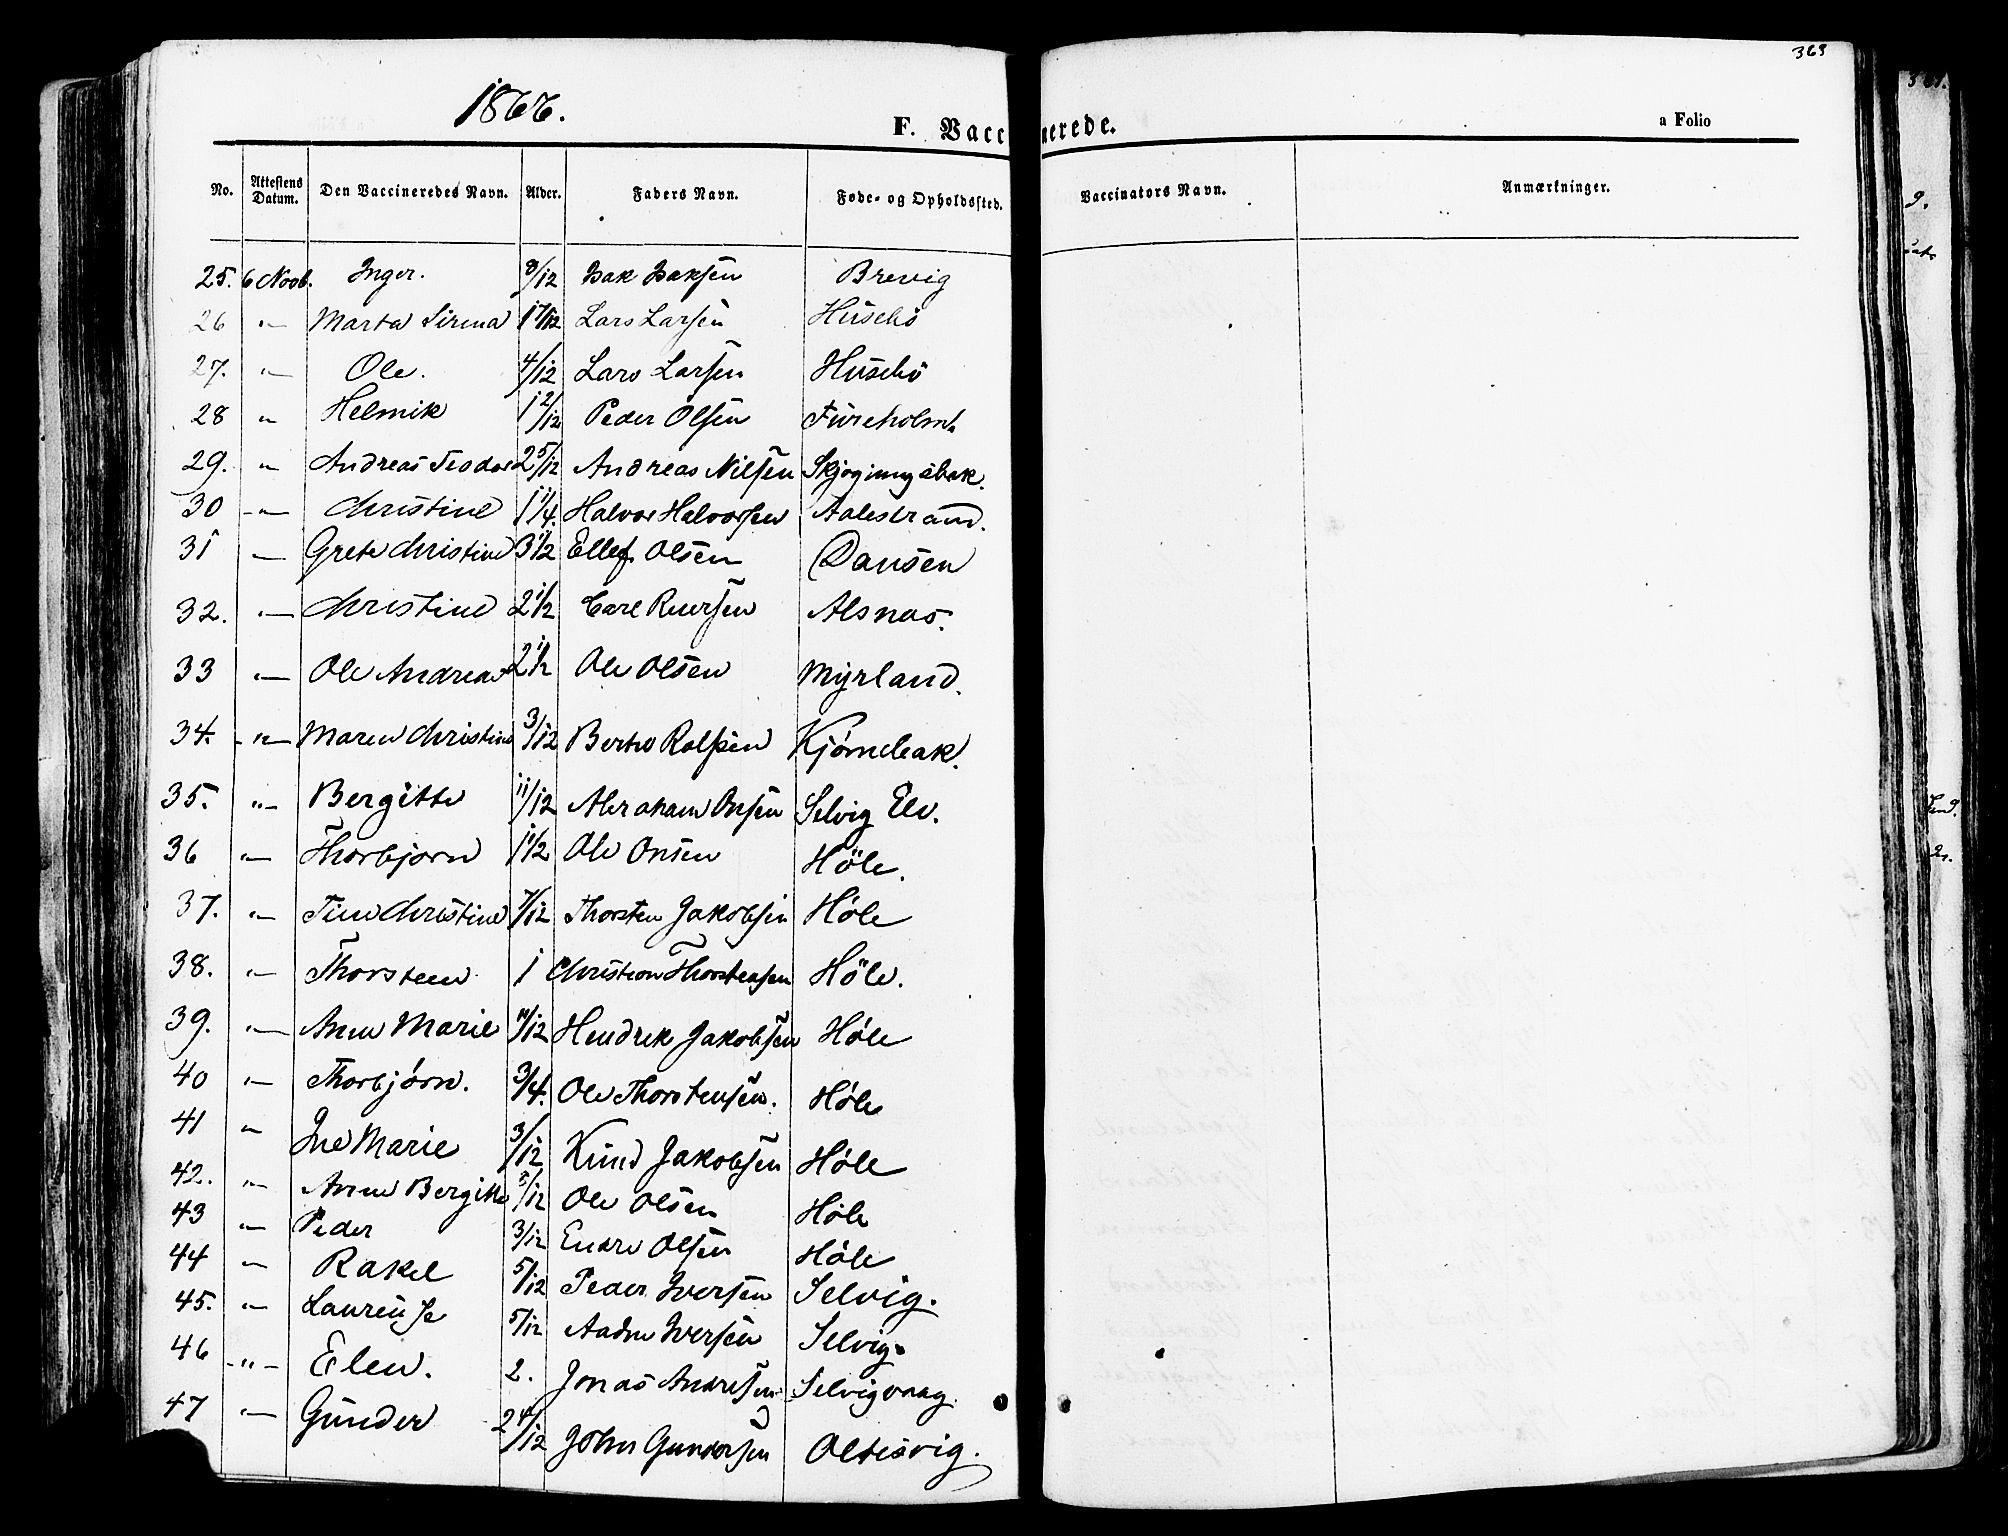 363
1866.
F. Vaccinerede.
a Folio
No. Attestens Datum. Den Vaccineredes Navn. Alder. Faders Navn. Føde- og Opholdssted. Vaccinators Navn. Anmærkninger.
25. 6 Novb. Inger. 8/12 Isak Isaksen Brevig
26 " Marta Sirena 1 7/12 Lars Larsen Husebö
27. " Ole. 4/12 Lars Larsen Husebö
28 " Helmik 1 2/12 Peder Olsen Fureholm
29. " Andreas Teodor 2 5/12 Andreas Nilsen
30 " Christine 1 1/4. Halvor Halvorsen Aalestrand.
31 " Grete Christine 3 1/2 Ellef Olsen Dansen
32. " Christine 2 1/2 Carl Reiersen Alsnas.
33 " Ole Andreas 2 1/2 Ole Olsen Myrland.
34. " Maren Christine 3/12 Kjørnebak.
35. " Bergitte 11/12 Abraham Onsen Selvig Elv.
36 " Thorbjorn 1 1/2 Ole Onsen Höle.
37. " Tine Christine 7/12 Thorsten Jakobsen Høle
38. " Thorsteen 1 Christian Thorstensen Höle.
39. " Anne Marie 11/12 Hendrik Jakobsen Høle
40 " Thorbjørn. 3/4. Ole Thorstensen. Høle
41 " Ine Marie 3/12 Knud Jakobsen Høle
42. " Anne Bergitte 5/12 Ole Olsen Høle
43 " Peder 3/12 Endre Olsen Høle
44 " Rakel 5/12 Peder Iversen Selvig.
45. " Laurense 5/12 Aadne Iversen Selvig.
46 " Elen. 2. Jonas Andresen Selvigvaag.
47 " Gunder 2 4/12 John Gundersen Oltesvig.